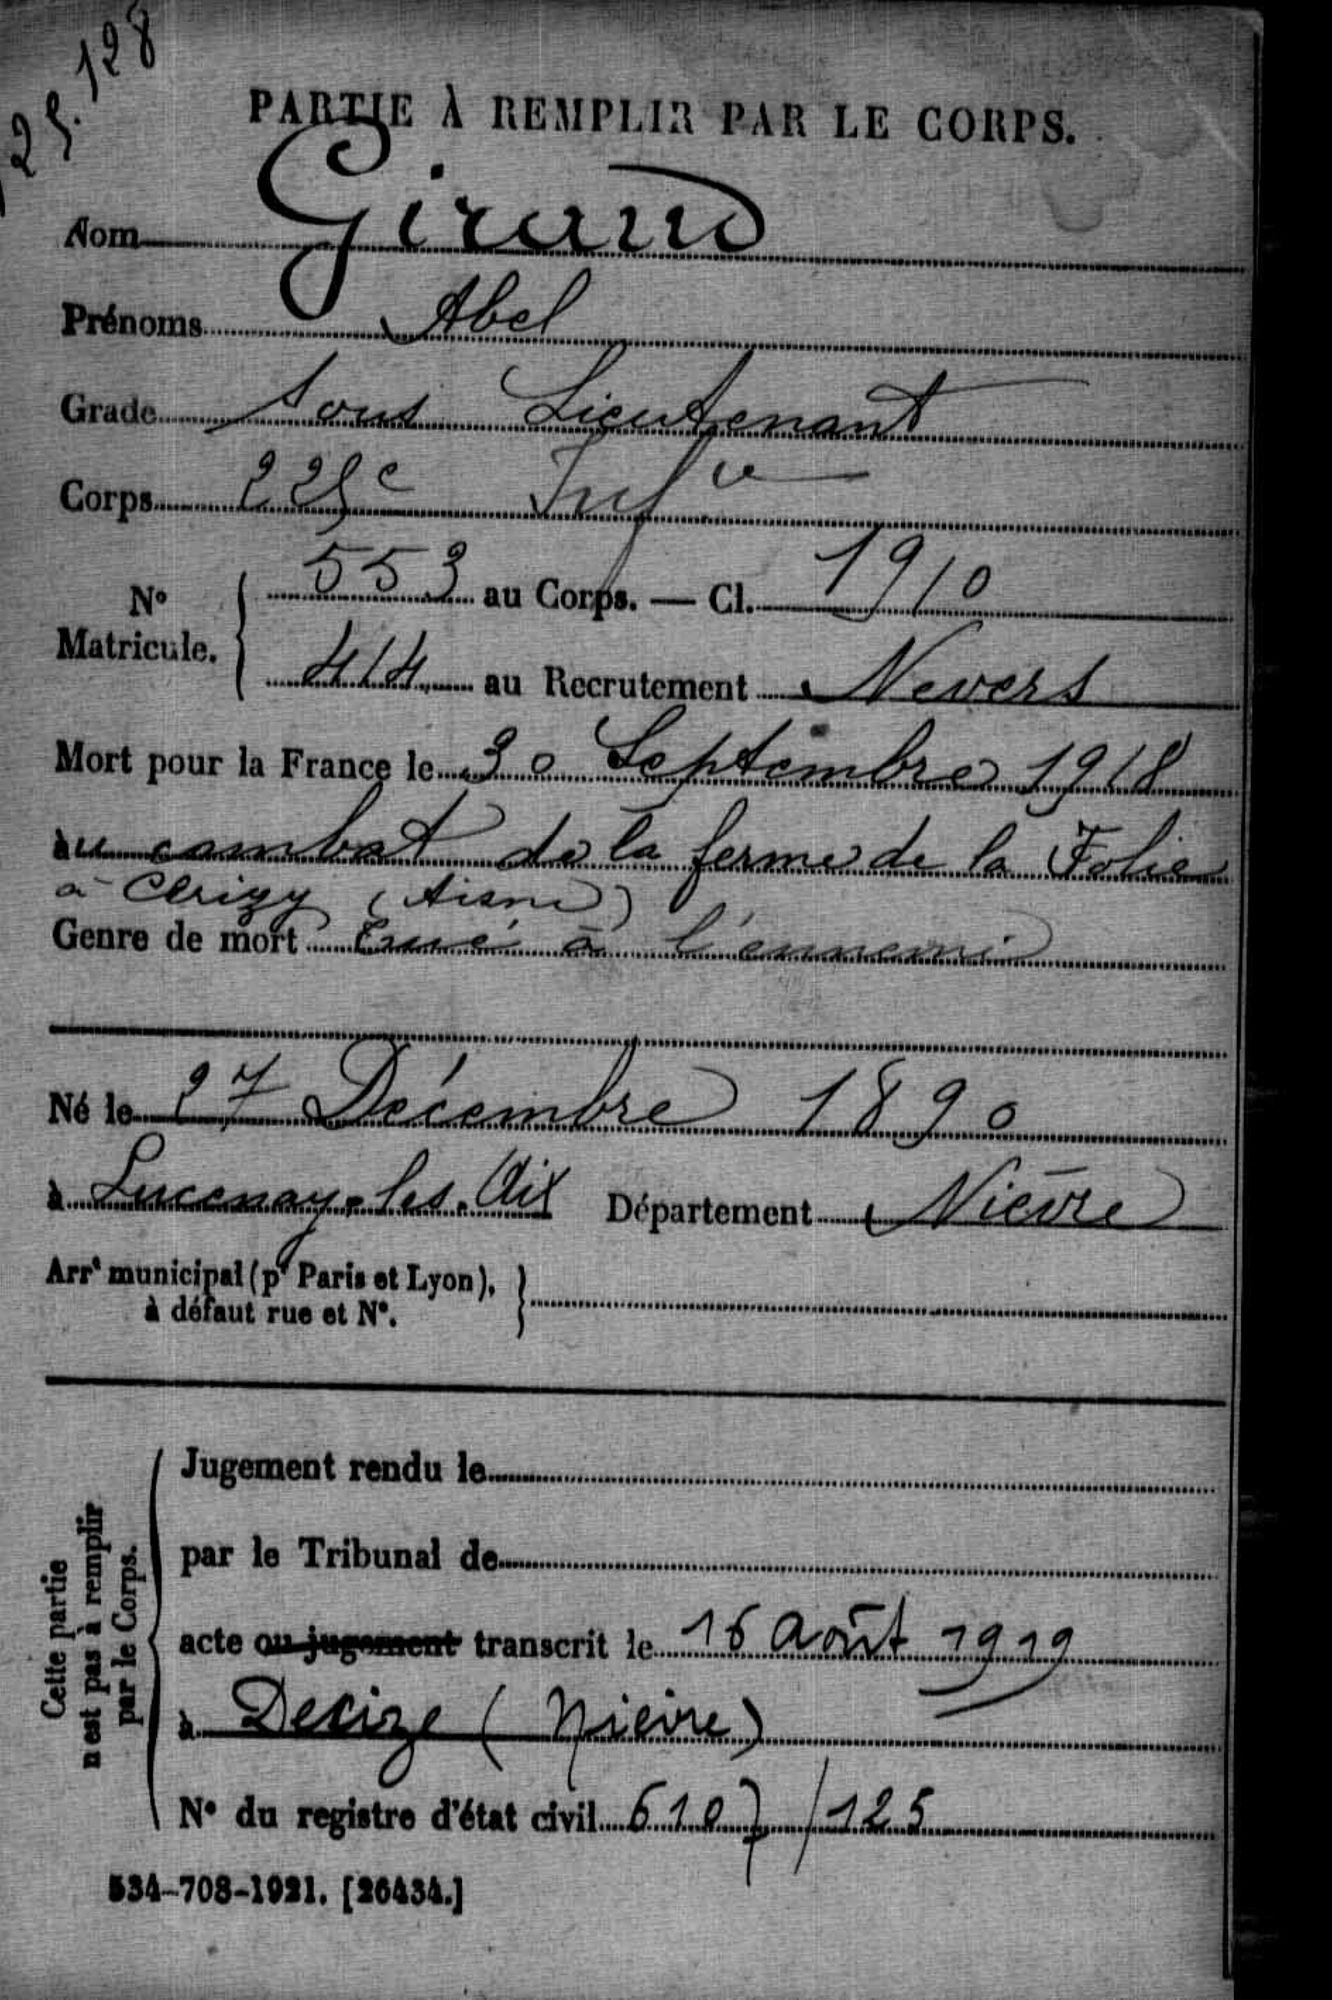 25.128
PARTIE À REMPLIR PAR LE CORPS.
Nom Giraud
Prénoms Abel
Grade Sous Lieutenant
Corps 225e Infie
No Matricule. { 553 au Corps. — Cl. 1910
414 au Recrutement Nevers
Mort pour la France le 30 Septembre 1918
au combat de la ferme de la Folie
à Cerizy (Aisne)
Genre de mort Tué à l'ennemi
Né le 27 Décembre 1890
à Lucenay-les-Aix Département Nièvre
Arrt municipal (pr Paris et Lyon), }
à défaut rue et No.
Cette partie
n'est pas à remplir
par le Corps.
Jugement rendu le
par le Tribunal de
acte ou jugement transcrit le 16 août 1919
à Decize (Nièvre)
No du registre d'état civil 6107/125
534-708-1921. [26434.]